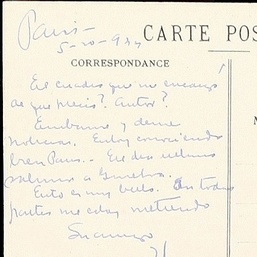 Paris -
5-10-9
CARTE POS
CORRESPONDANCE
El cuadro que me encargó
de que precio? Autor?
Escríbame y deme
noticias. Estoy conociendo
bien Paris. - Ese dia
salimos a Ginebra.
Esto es muy bello. En todas
partes me estoy metiendo
Su amigo